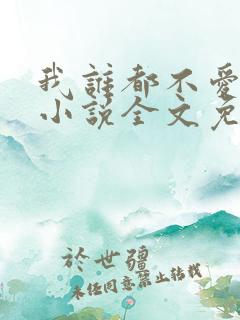 我誰都不愛
小说全文免
於世疆
未经同意禁止转载